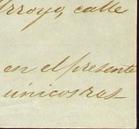 Arroyo, calle
en el presente
únicos res-